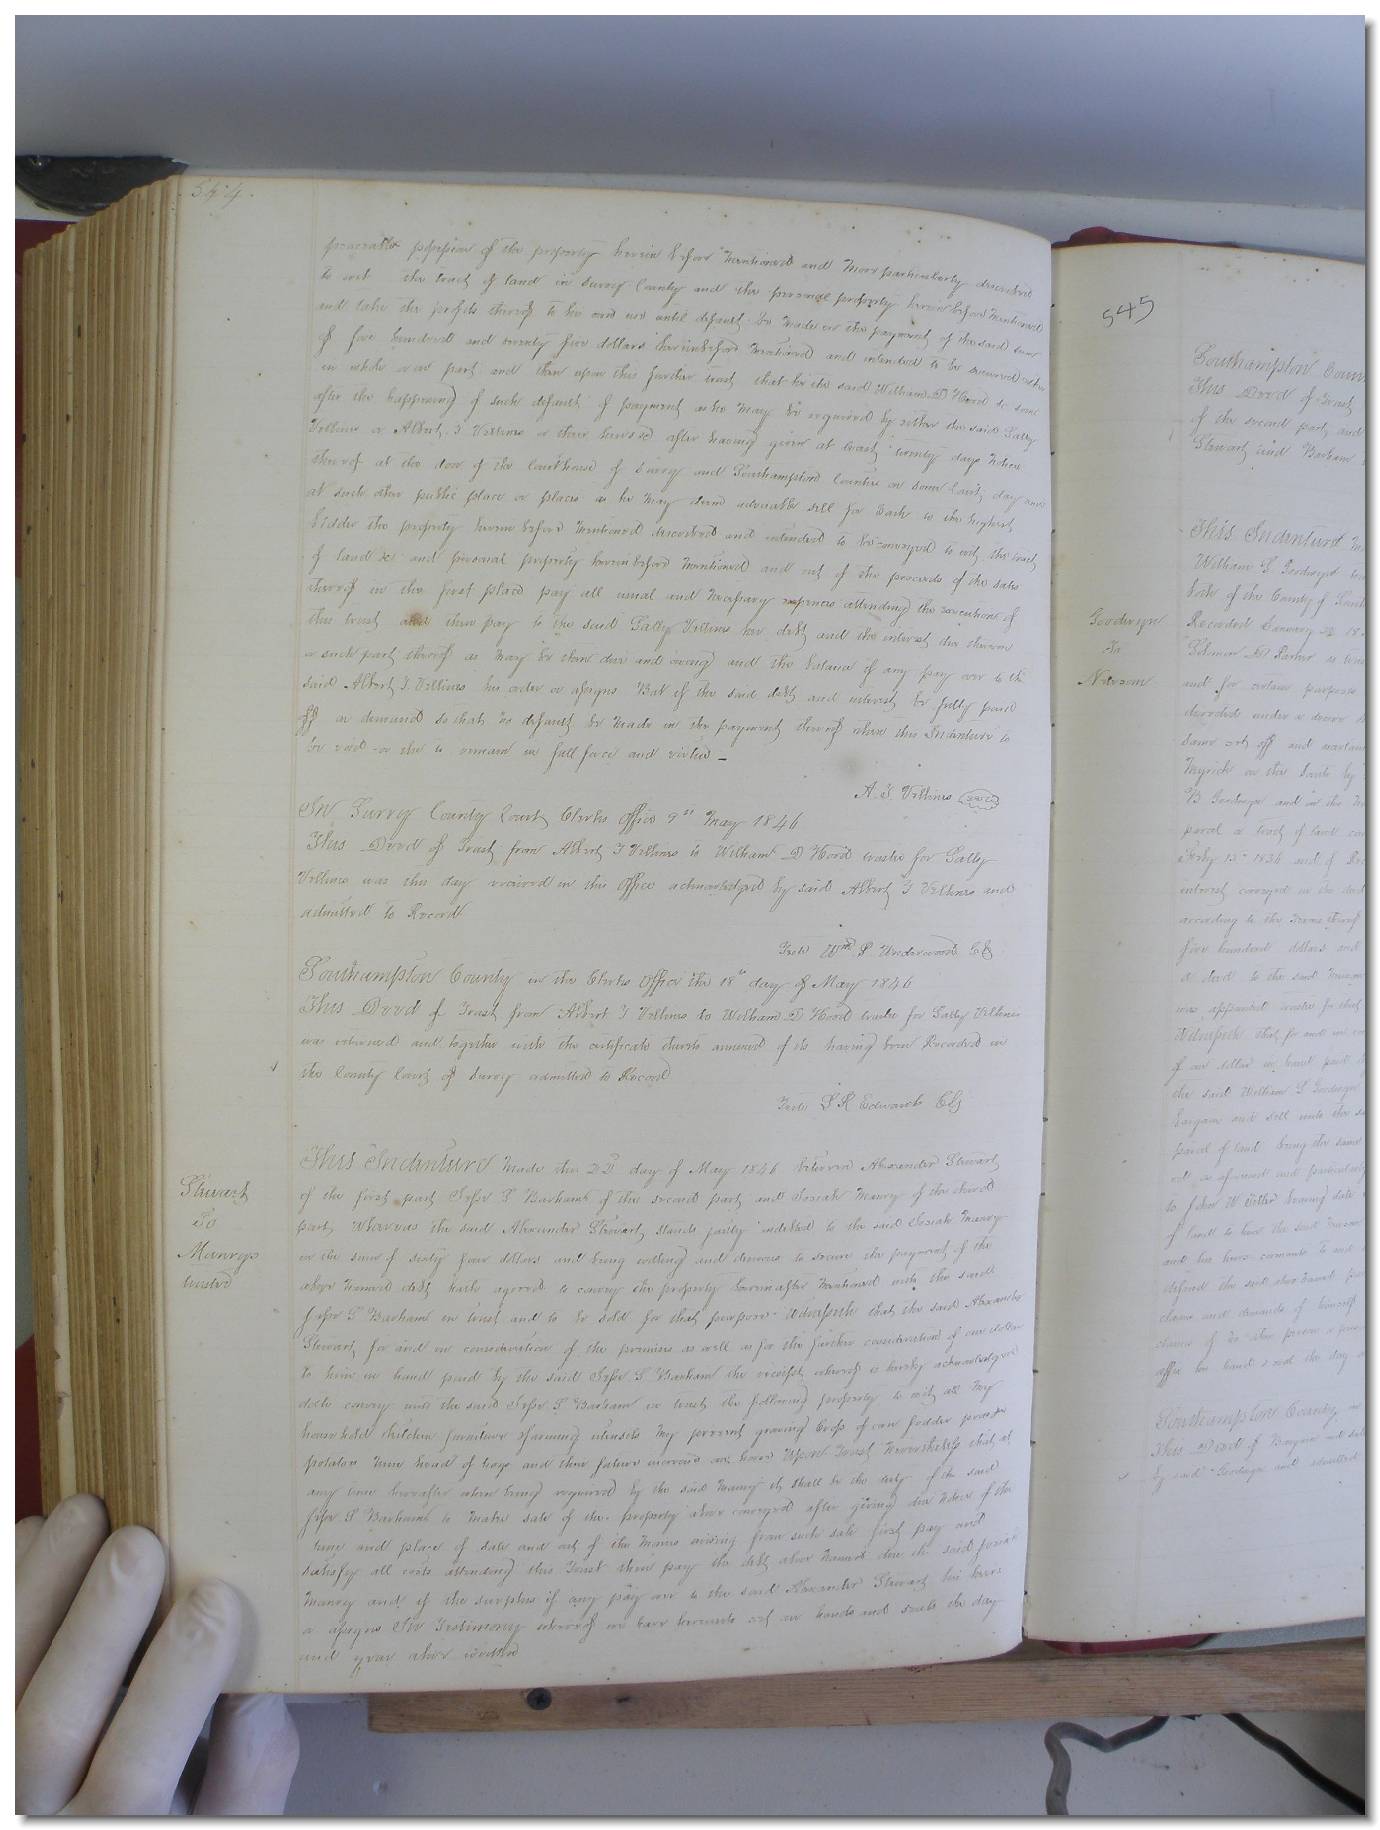 544.
peaceable possession of the property herein before mentioned and more particularly described
to wit the tract of land in Surry County and the personal property herein before mentioned
and take the profits thereof to his own use until default be made in the payment of the said sum
of five hundred and twenty five dollars herein before mentioned and intended to be secured either
in whole or in part and then upon this further trust that he the said William D Hood so soon
after the happening of such default of payment as he may be required by either the said Sally
Vellines or Albert T Vellines or their heirs &c after having given at least twenty days notice
thereof at the door of the Courthouse of Surry and Southampton Counties on some Court day and
at such other public place or places as he may deem advisable sell for Cash to the highest
bidder the property herein before mentioned described and intended to be conveyed to wit the tract
of land &c and personal property herein before mentioned and out of the proceeds of the sales
thereof in the first place pay all usual and necessary expences attending the execution of
this trust and then pay to the said Sally Vellines her debt and the interest due thereon
or such part thereof as may be then due and owing and the balance if any pay over to the
said Albert T. Vellines his order or assigns But if the said debt and interest be fully paid
off on demand so that no default be made in the payment thereof then this Indenture to
be void or else to remain in full force and virtue
A. T. Vellines Seal
In Surry County Court Clerks Office 9th May 1846
This Deed of Trust from Albert T Vellines to William D Hood trustee for Sally
Vellines was this day received in this Office acknowledged by said Albert T Vellines and
admitted to Record
Teste Wm P Underwood Clk
Southampton County in the Clerks Office the 18th day of May 1846
This Deed of Trust from Albert T Vellines to William D Hood trustee for Sally Vellines
was returned and together with the certificate thereto annexed of its having been Recorded in
the County Court of Surry admitted to Record
Teste L R Edwards Clk
Stewart
To
Manrys
trustee
This Indenture Made the 22d day of May 1846 between Alexander Stewart
of the first part Jesse S Barham of the second part and Josiah Manry of the third
part, Whereas the said Alexander Stewart stands justly indebted to the said Josiah Manry
in the sum of sixty four dollars and being willing and desirous to secure the payment of the
above named debt hath agreed to convey the property hereinafter mentioned unto the said
Jesse S Barham in trust and to be sold for that purpose Witnesseth that the said Alexander
Stewart for and in consideration of the premises as well as for the further consideration of one dollar
to him in hand paid by the said Jesse S Barham the receipt whereof is hereby acknowledged
doth convey unto the said Jesse S Barham in trust the following property to wit all my
household kitchen furniture farming utensils my present growing Crops of corn fodder peas
potatoes nine head of hogs and their future increase one horse Upon Trust Nevertheless that at
any time hereafter when being required by the said Manry it shall be the duty of the said
Jesse S Barham to make sale of the property above conveyed after giving due notice of the
time and place of sale and out of the monies arising from such sale first pay and
satisfy all costs attending this Trust then pay the debt above named due the said Josiah
Manry and if the surplus if any pay over to the said Alexander Stewart his heirs
or assigns In Testimony whereof we have hereunto set our hands and seals the day
and year above written
545
Southampton Coun
This Deed of Trust
of the second part and
Stewart and Barham
Goodwyn
To
Newsom
This Indenture
William S Goodwyn
both of the County of
Recorded January
Solomon D Parker
and for certain purposes
decided under a decree
same set off and
Myrick in the Suit by
B Goodwyn and in the
parcel or tract of land
July 15th 1836 and of
interest conveyed in the deed
according to the terms thereof
five hundred dollars and
a deed to the said
was appointed trustee for that
Witnesseth that for and in
of one dollar in hand paid
the said William S Goodwyn
bargain and sell unto the
parcel of land being the same
to John W
of land to have the said
and his heirs
defend the said above named
claim and demands of himself
claims of
affix his hand & seal the day
Southampton County
This Deed of Bargain and sale
by said Goodwyn and admitted